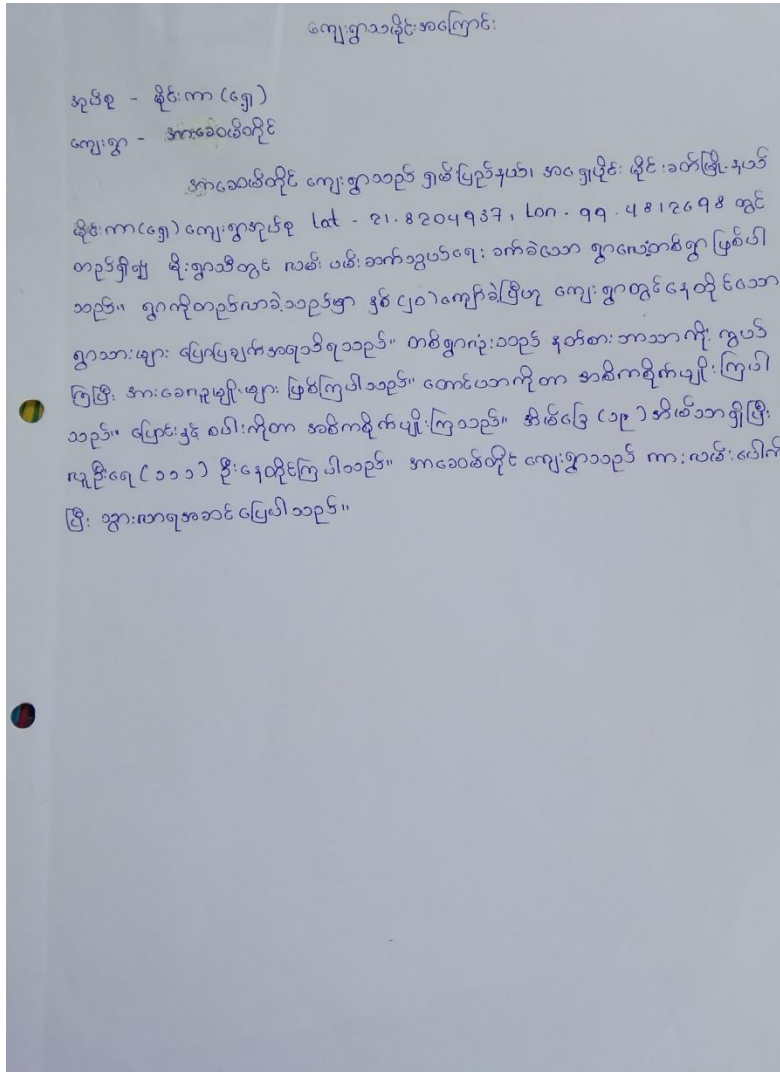 ကျေးရွာသမိုင်းအကြောင်း
အုပ်စု - မိုင်းကာ (ရှေ့)
ကျေးရွာ - အားခေဝမ်တိုင်
အာခေဝမ်တိုင် ကျေးရွာသည် ရှမ်းပြည်နယ်၊ အရှေ့ပိုင်း မိုင်းခတ်မြို့နယ်
မိုင်းကာ(ရှေ့) ကျေးရွာအုပ်စု Lat - 21.8204937, Lon - 99.4812698 တွင်
တည်ရှိ၍ မိုးရာသီတွင် လမ်း ပမ်းဆက်သွယ်ရေး ခက်ခဲသော ရွာလေးတစ်ရွာ ဖြစ်ပါ
သည်။ ရွာကိုတည်လာခဲ့သည်မှာ နှစ် (၂၀) ကျော်ခဲ့ပြီဟု ကျေးရွာတွင်နေတိုင်သော
ရွာသားများ ပြောပြချက်အရသိရသည်။ တစ်ရွာလုံးသည် နတ်စားဘာသာကိုး ကွယ်
ကြပြီး အားခေလူမျိုးများ ဖြစ်ကြပါသည်။ တောင်ယာကိုတာ အဓိကစိုက်ပျိုးကြပါ
သည်။ ပြောင်းနှင့် စပါးကိုတာ အဓိကစိုက်ပျိုးကြသည်။ အိမ်ခြေ (၁၉) အိမ်သာရှိပြီး
လူဦးရေ (၁၁၁) ဦးနေတိုင်ကြပါသည်။ အာခေဝမ်တိုင် ကျေးရွာသည် ကားလမ်းပေါက်
ပြီး သွားလာရအဆင်ပြေပါသည်။